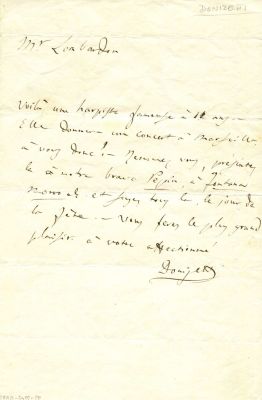 DONIZETTI
Mr Lombardon
Voilà une harpiste fameuse à 12 ans —
Elle donnera un concert à Marseille
à vous donc! — vous, présentez
la à notre brave Pepin, à
et soyez tous là, le jour de
la fête. — Vous ferez le plus grand
plaisir à votre affectionné
Donizetti